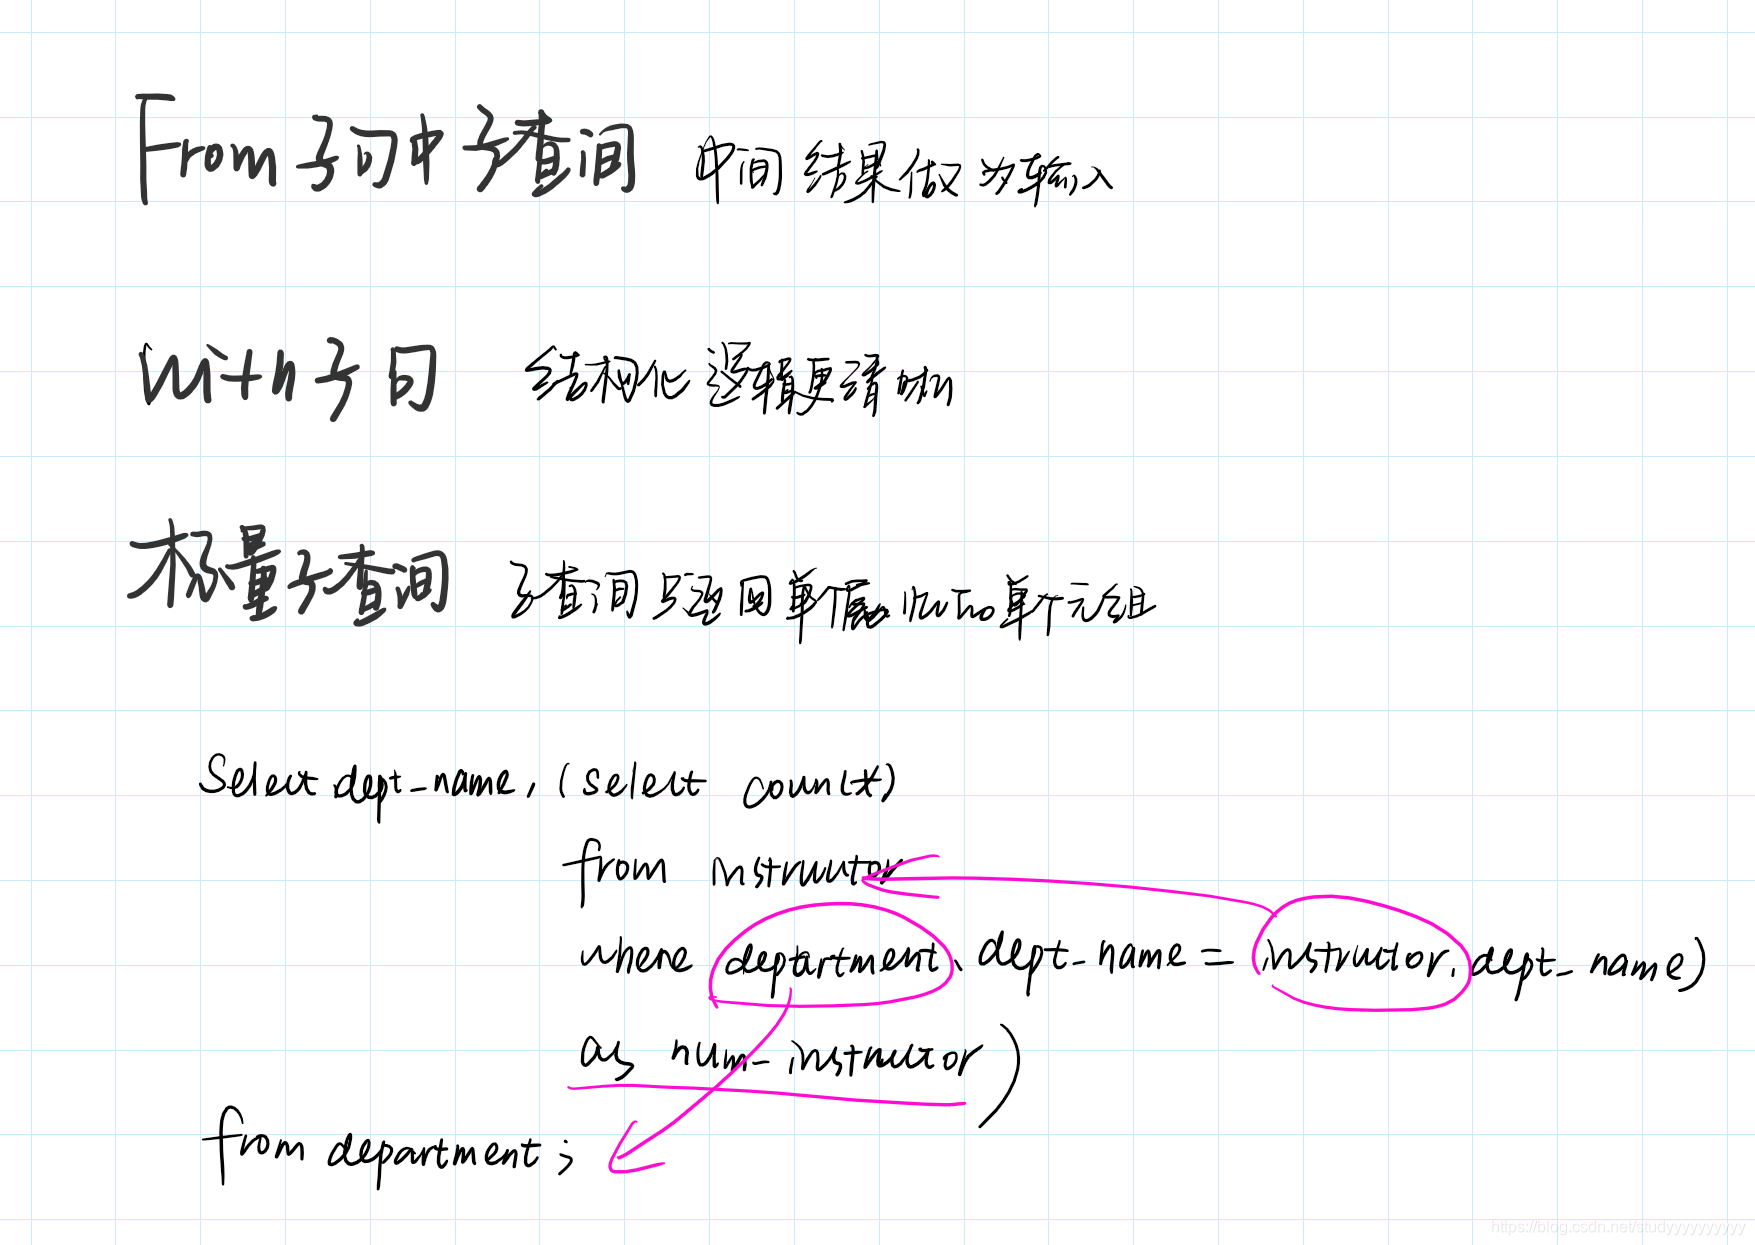 From 子句中子查询 中间结果做为输入
With 子句 结构化 逻辑更清晰
标量子查询 子查询只返回单个属性 单个元组
Select dept_name, (select count(*)
from instructor
where department.dept_name = instructor.dept_name)
as num_instructor)
from department;
https://blog.csdn.net/studyyyyyyyyyy